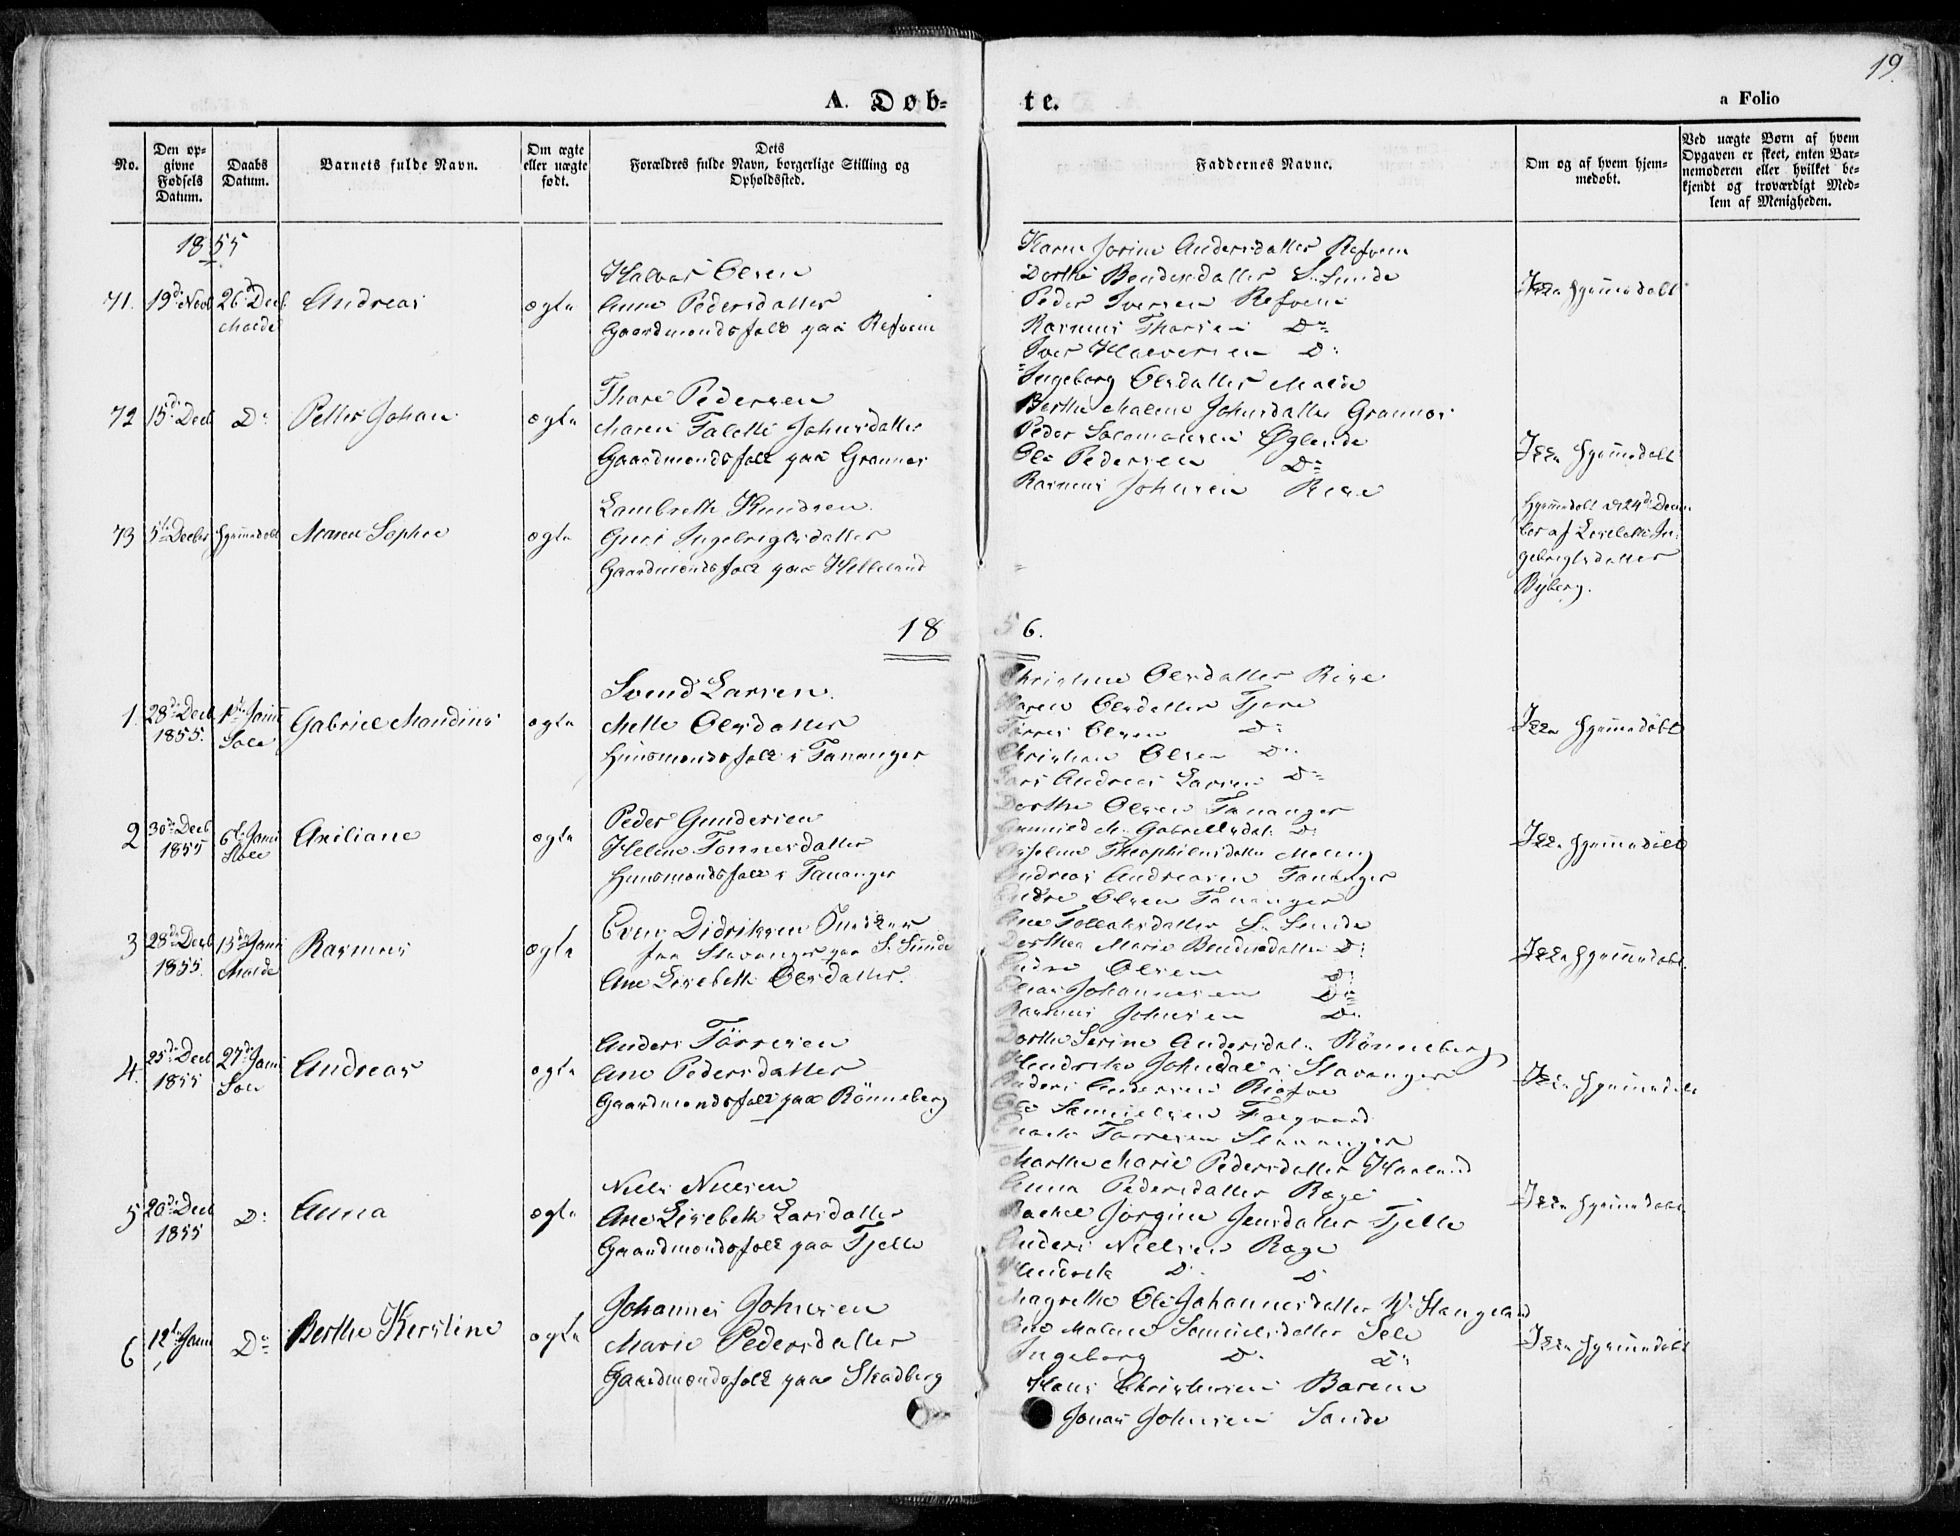 19.
A. Døb-
te.
a Folio
No.
Den op-
givne
Fødsels
Datum.
Daabs
Datum.
Barnets fulde Navn.
Om ægte
eller uægte
født.
Dets
Forældres fulde Navn, borgerlige Stilling og
Opholdssted.
Faddernes Navne.
Om og af hvem hjem-
medøbt.
Ved uægte Børn af hvem
Opgaven er skeet, enten Bar-
nemoderen eller hvilket be-
kjendt og troværdigt Med-
lem af Menigheden.
1855
71. 19de Novb 26de Decb
Malde
Andreas
ægte
Halvor Olsen
Anne Pedersdatter
Gaardmandsfolk paa Refvem
Karen Jorine Andersdatter Refvem
Dorthe Bendersdatter S. Sunde
Peder Iversen Refvem
Rasmus Thorsen Do
Iver Halvorsen Do
Ikke hjemmedøbt
72 15de Decb Do Petter Johan
ægte
Thore Pedersen
Maren Taletti Johnsdatter
Gaardmandsfolk paa Grannes
Ingeborg Olsdatter Malde
Berthe Malene Johnsdatter Grannes
Peder Salamonsen Øglende
Ole Pedersen Do
Rasmus Johnsen Rege
Ikke hjemmedøbt
73 5te Decbr hjemmedøbt Maren Sophie
ægte
Lambreth Knudsen
Guri Ingebrigtsdatter
Gaardmandsfolk paa Helleland
hjemmedøbt d 24de Decem
ber af Lisebeth In-
gebrigtsdatter
Byberg.
1856.
1. 28de Decb
1855.
1ste Janu
Sole
Gabriel Mandius
ægte
Svend Larsen
Mette Olsdatter
Huusmandsfolk i Tananger
Christine Olsdatter Rige
Karen Olsdatter Tjore
Tørres Olsen Do
Christian Olsen Do
Lars Andreas Larsen Do
Ikke hjemmedøbt
2 30te Decb
1855
6te Janu
Sole
Axiliane
ægte
Peder Gundersen
Helene Tonnesdatter
Huusmandsfolk i Tananger
Dorthe Olsen Tananger
Gunnild M. Gabrielsdat. Do
Theophilusdatter Meling
Andreas Andreasen Tananger
Andre Olsen Tananger
Ikke hjemmedøbt
3 28de Decb
1855.
13de Janu
Malde
Rasmus
ægte
Even Didriksen
fra Stavanger paa S. Sunde
Ane Lisebeth Olsdatter.
Ane Tollaksdatter S. Sunde
Dorthea Marie Bendersdatter Do
Andre Olsen Do
Elias Johannesen Do
Rasmus Johnsen Do
Ikke hjemmedøbt.
4. 25de Decb
1855
27de Janu
Sole
Andreas
ægte
Anders Tørresen
Ane Pedersdatter
Gaardmandsfolk paa Rönneberg
Dorthe Serine Andersdat. Rönneberg
Hendrikke Johnsdat. Stavanger
Anders Andersen Risfoe
Ole Samuelsen
Enoch Tørresen Stavanger
Ikke hjemmedøbt
5 20de Decb
1855
Do
Anna
ægte
Niels Nielsen
Ane Lisebeth Larsdatter
Gaardmandsfolk paa Tjelle
Marthe Marie Pedersdatter Haaland
Anna Pedersdatter Rage
Rachel Jorgine Jensdatter Tjelle
Anders Nielsen Rage
Hendrik Do Do
Ikke hjemmedøbt
6 12te Janu
Do
Berthe Kerstine
ægte
Johannes Johnsen
Marie Pedersdatter
Gaardmandsfolk paa Skadberg
Magrethe Ols Johannesdatter W. Stangeland
Ane Malene Samuelsdatter Sele
Ingeborg Do Do
Hans Christensen
Jonas Johnsen Sande
Ikke hjemmedøbt